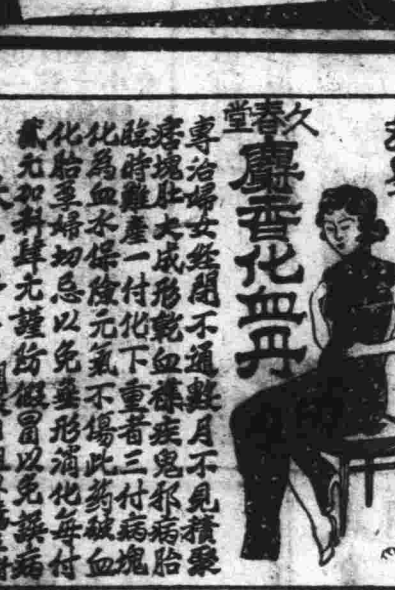 久春堂
麝香化血丹
專治婦女經閉不通數月不見積聚
痞塊肚大成形乾血癆疾鬼邪病胎
臨時難產一付化下重者三付病塊
化為血水保險元氣不傷此葯破血
化胎孕婦切忌以免無形消化每付
貳元加料肆元謹防假冒以免誤病